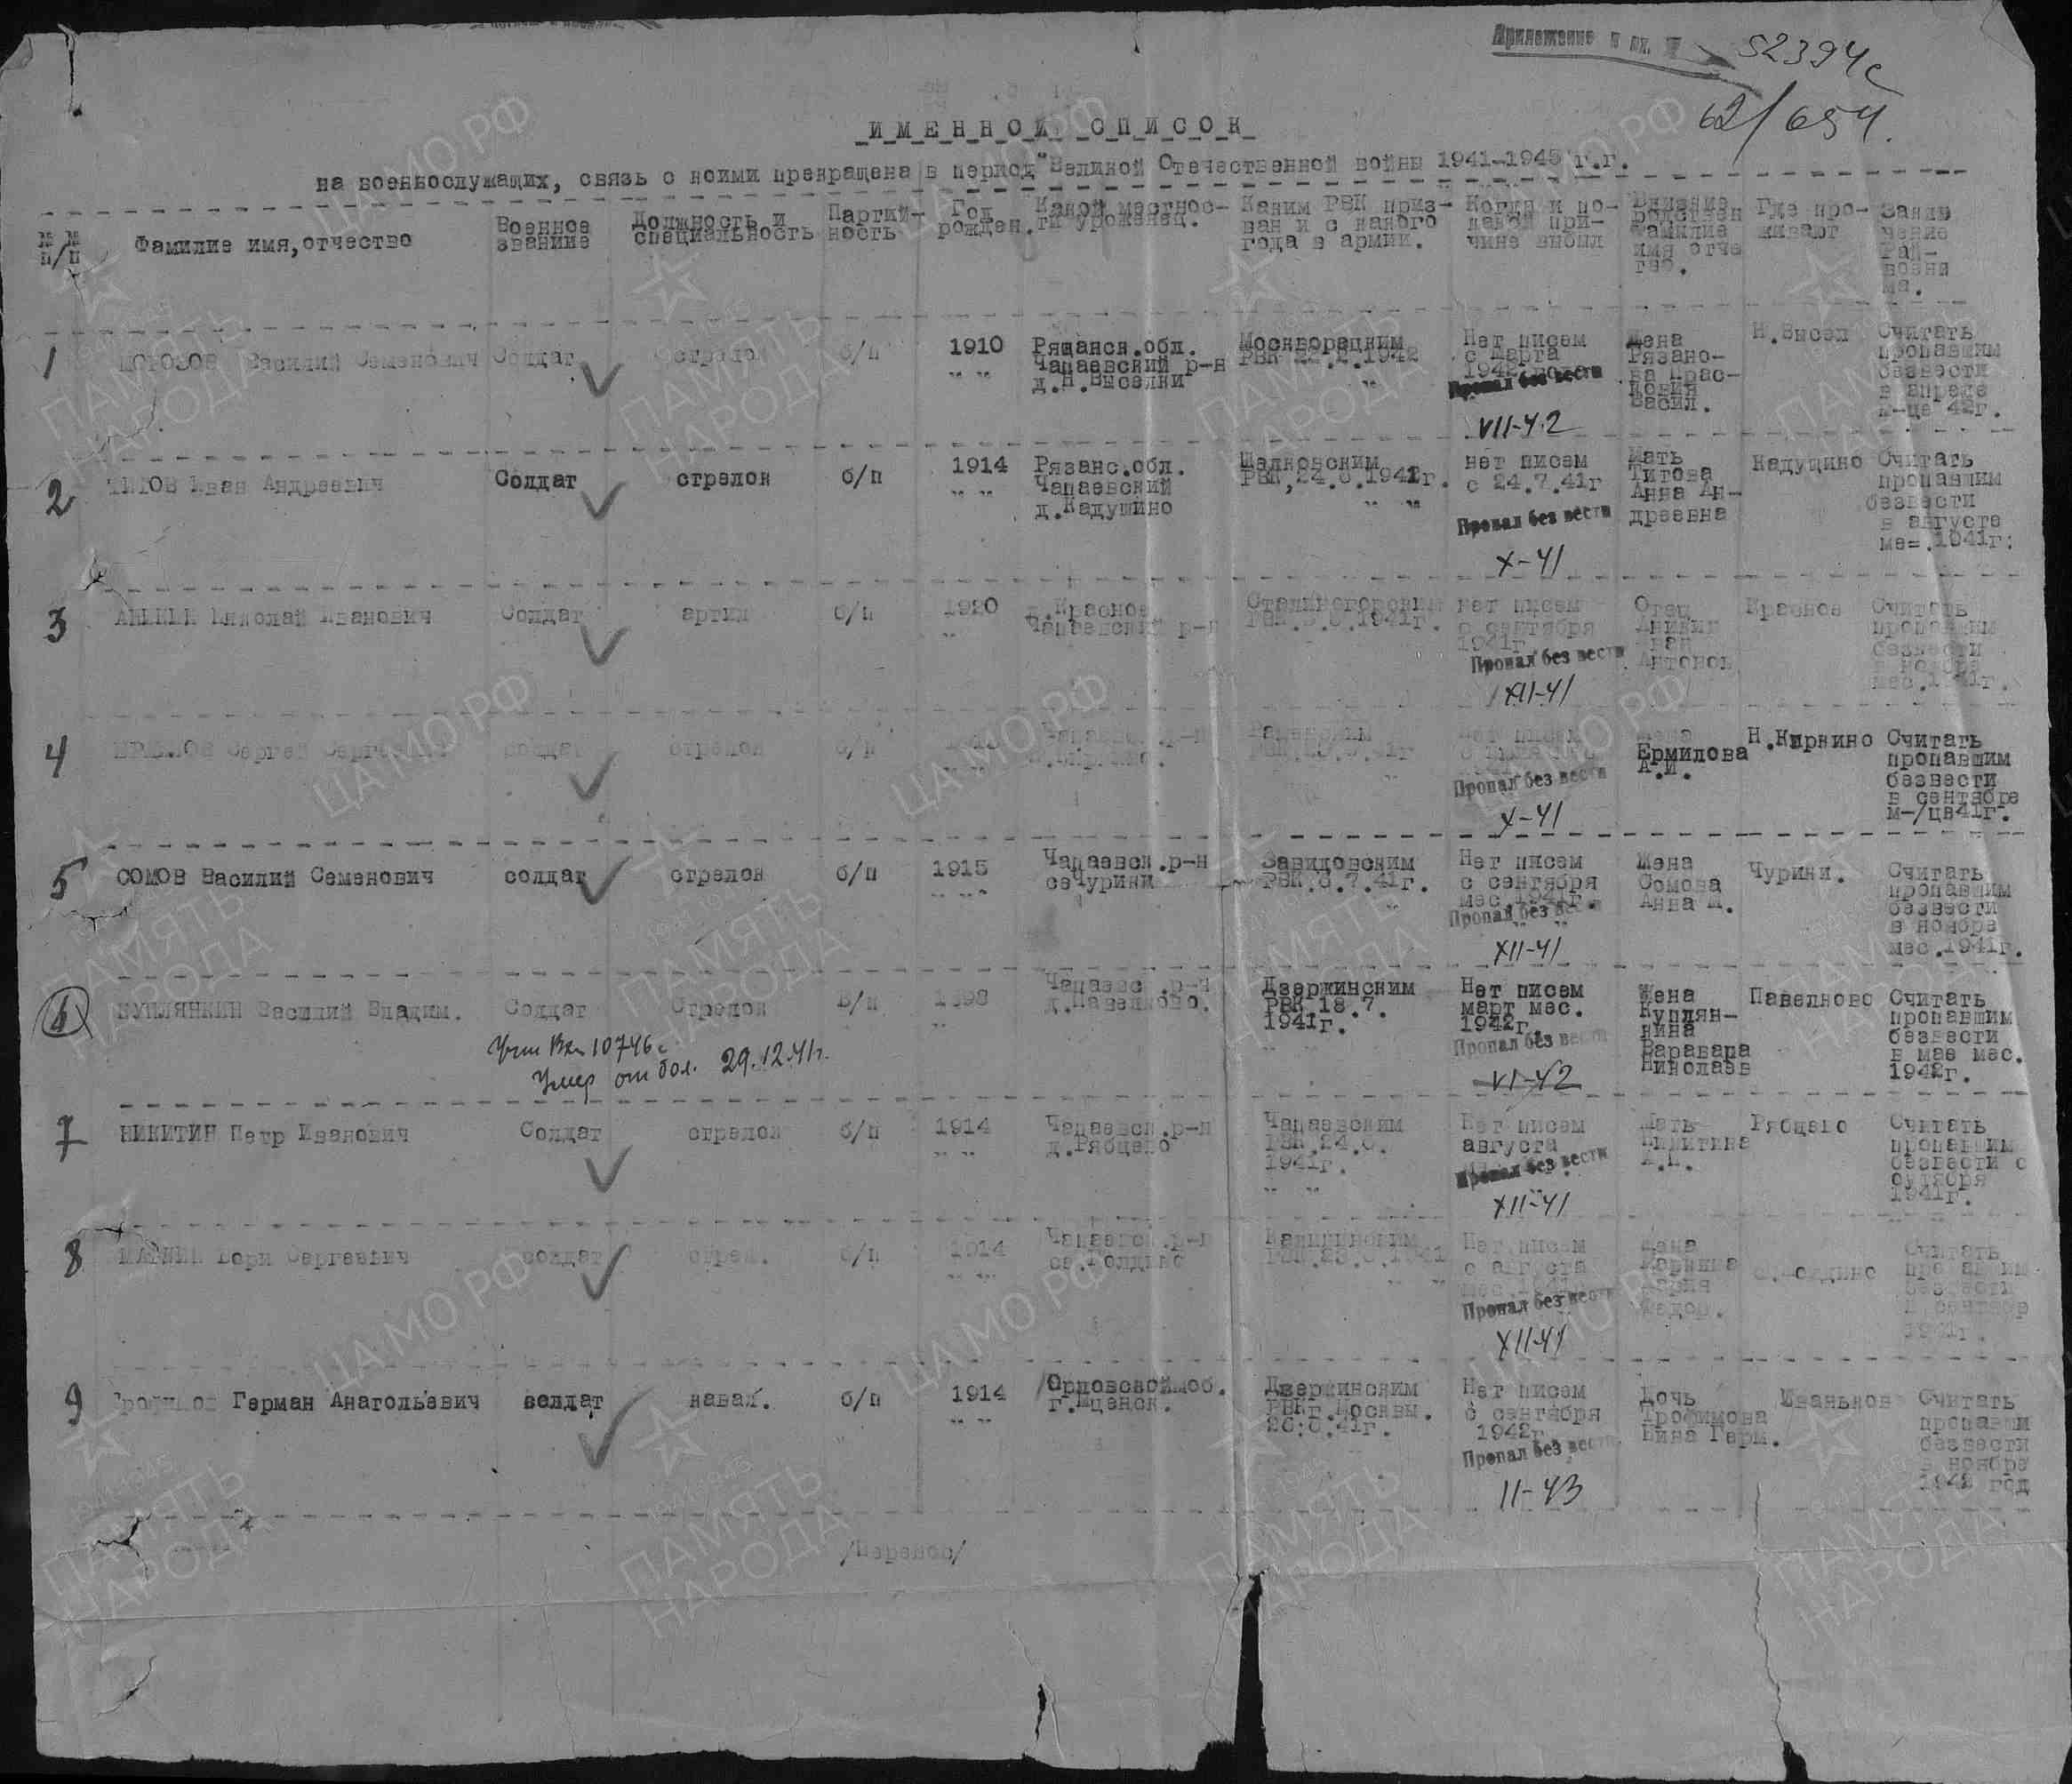 Приложение к вх. № 52394с
62/654.
ИМЕННОЙ СПИСОК
на военнослужащих, связь с коими прекращена в период Великой Отечественной войны 1941-1945 г.г.
№№ п/п
Фамилие имя, отчество
Военное звание
Должность и специальность
Партий-ность
Год рожден.
Какой местнос-ти уроженец.
Каким РВК приз-ван и с какого года в армии.
Когда и по какой при-чине выбыл
фамилие имя отче
Где про-живают
1
Василий Семенович Солдат стрелок б/п 1910
Рязанск.обл.
Чапаевский р-н
д.Н.Выселки
Москворецким
РВК 22.2.1942
Нет писем
с марта
1942
Пропал без вести
VII-42
Жена
Рязано-
ва Прас-
ковия
Васил.
Н.Высел
Считать
пропавшим
безвести
в апреле
м-це 42г.
2
Иван Андреевич Солдат стрелок б/п 1914
Рязанс.обл.
Чапаевский
д.Кадушино
РВК,24.6.1941г.
нет писем
с 24.7.41г
Пропал без вести
X-41
Мать
Титова
Анна Ан-
дреевна
Кадушино
Считать
пропавшим
безвести
в августе
ме=.1941г:
3
АНИКИН Николай Иванович Солдат артил б/п 1920
д.Красное
Чапаевский р-н
Сталиногорским
нет писем
с сентября
1941г
Пропал без вести
XII-41
Отец
Аникин
Антонов
Красное
Считать
пропавшим
безвести
в ноябре
мес.1941г.
4
Сергей Сергеевич солдат стрелок б/п
Пропал без вести
X-41
Жена
Ермилова
А.И.
Н.Киркино
Считать
пропавшим
безвести
в сентябре
м-/це41г.
5
СОМОВ Василий Семенович солдат стрелок б/п 1915
Чапаевск.р-н
се Чурики
Завидовским
РВК.6.7.41г.
Нет писем
с сентября
мес.1941г.
Пропал без вести
XII-41
Жена
Сомова
Анна М.
Чурики.
Считать
пропавшим
безвести
в ноябре
мес.1941г.
6
КУПЛЯНКИН Василий Владим. Солдат Стрелок Б/п 1898
Чапаевс .р-н
д.Павелково.
Дзержинским
РВК.18.7.
1941г.
Нет писем
март мес.
1942г.
Пропал без вести
VI-42
Жена
Куплян-
кина
Варавара
Николаев
Павелково
Считать
пропавшим
безвести
в мае мес.
1942г.
10746с
Умер от бол. 29.12.41г.
7
НИКИТИН Петр Иванович Солдат стрелок б/п 1914
Чапаевск.р-н
д.Рябцево
Чапаевским
РВК.24.6.
1941г.
Нет писем
августа
Пропал без вести
XII-41
Мать
Никитина
Рябцево
Считать
пропавшим
безвести с
октября
1941г.
8
Сергеевич солдат стрел. б/п 1914
Чапаевск.р-н
Калининским
Нет писем
с августа
Пропал без вести
XII-41
Жена
Карнина
Мария
Федор.
Считать
1941г.
9
Герман Анатольевич солдат кавал. б/п 1914
Орловской об.
г.Мценск.
Дзержинским
РВКг.Москвы.
26.6.41г.
Нет писем
с сентября
1942г
Пропал без вести
II-43
Дочь
Трофимова
Нина Герм.
Иваньков
Считать
пропавши
безвести
в ноябре
1942 год
/Перенос/
ЦАМО РФ
ПАМЯТЬ НАРОДА